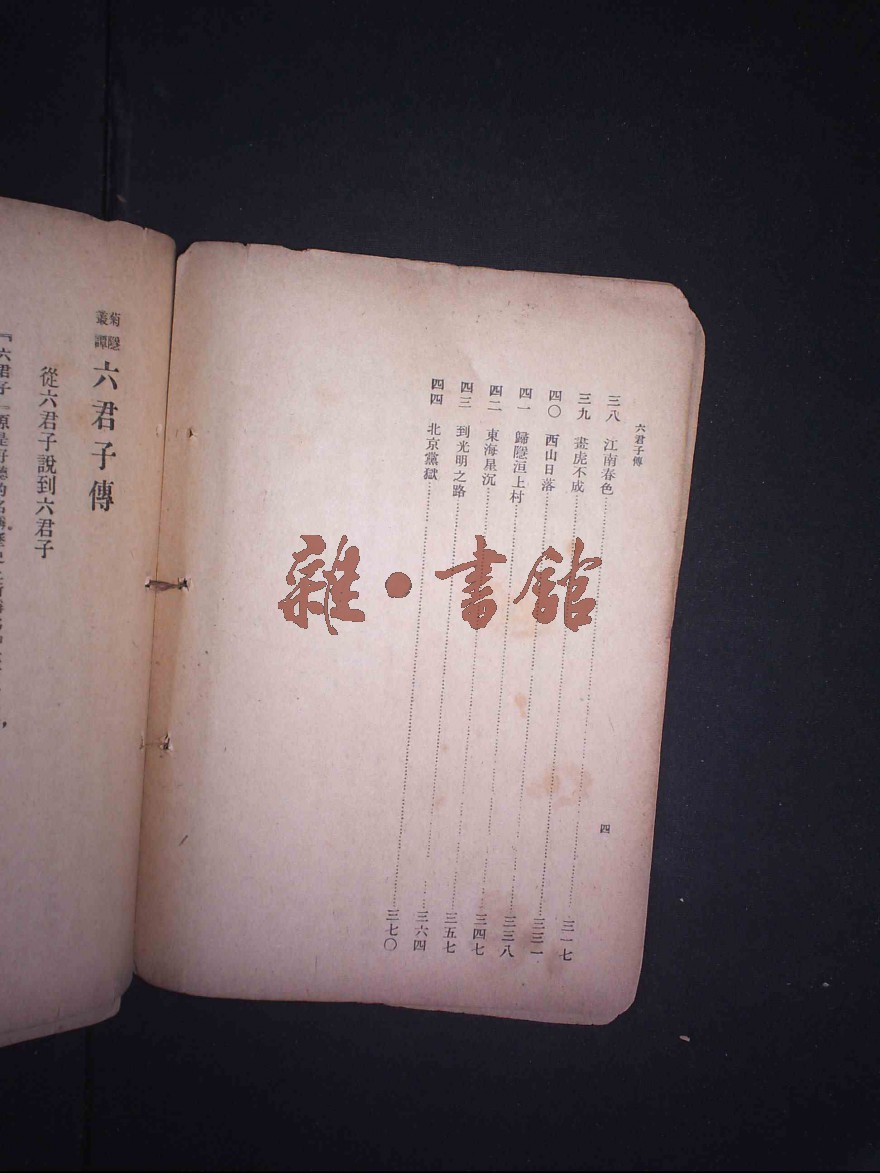 六君子傳
四
三八 江南春色……三一七
三九 畫虎不成……三三一
四〇 西山日落……三三八
四一 歸隱洹上村……三四七
四二 東海星沉……三五七
四三 到光明之路……三六四
四四 北京黨獄……三七〇
雜·書館
菊隱叢譚
六君子傳
從六君子說到六君子
『六君子』原是